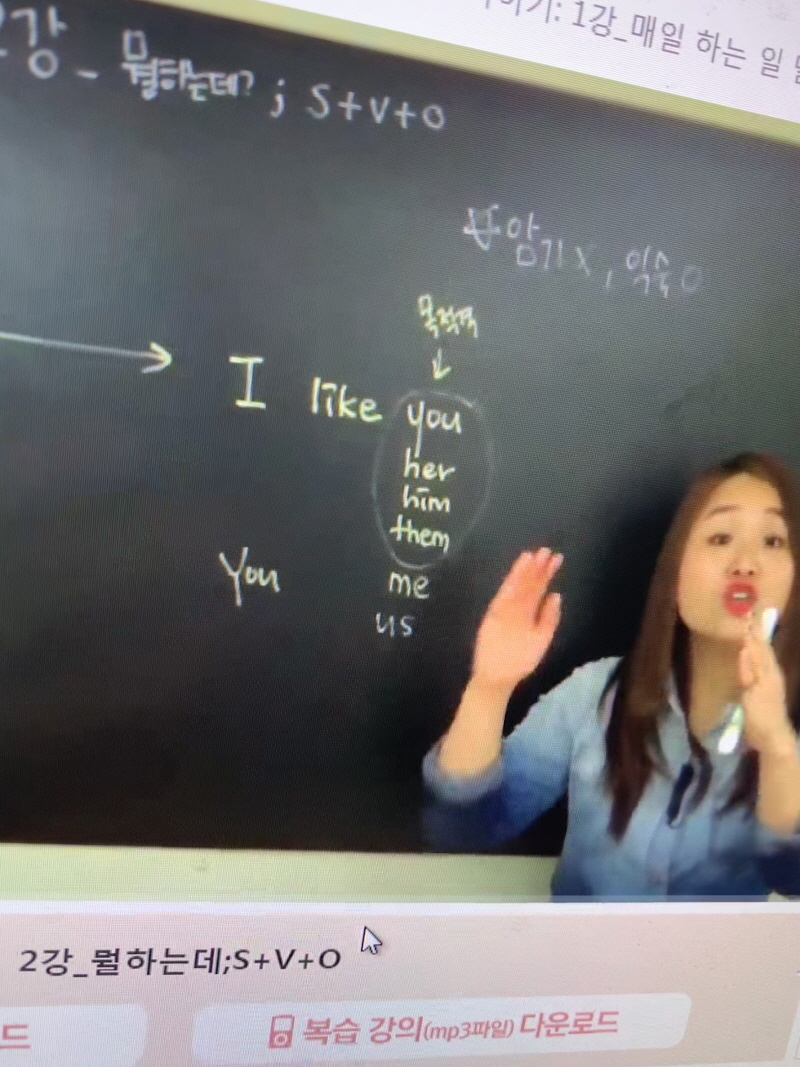 1강_매일 하는 일
강_뭘하는데? ; S+V+O
암기X, 익숙O
목적격
↓
I like you
her
him
them
You me
us
2강_뭘하는데;S+V+O
드
복습 강의(mp3파일) 다운로드